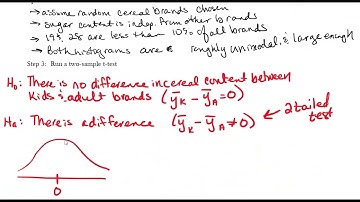 → assume random cereal brands chosen
→ sugar content is indep. from other brands
→ 19 & 28 are less than 10% of all brands
→ Both histograms are roughly unimodal & large enough
Step 3: Run a two-sample t-test
H₀: There is no difference in cereal content between
Kids & adult brands (y̅K - y̅A = 0)
Ha: There is a difference (y̅K - y̅A ≠ 0) ← 2 tailed
test
0